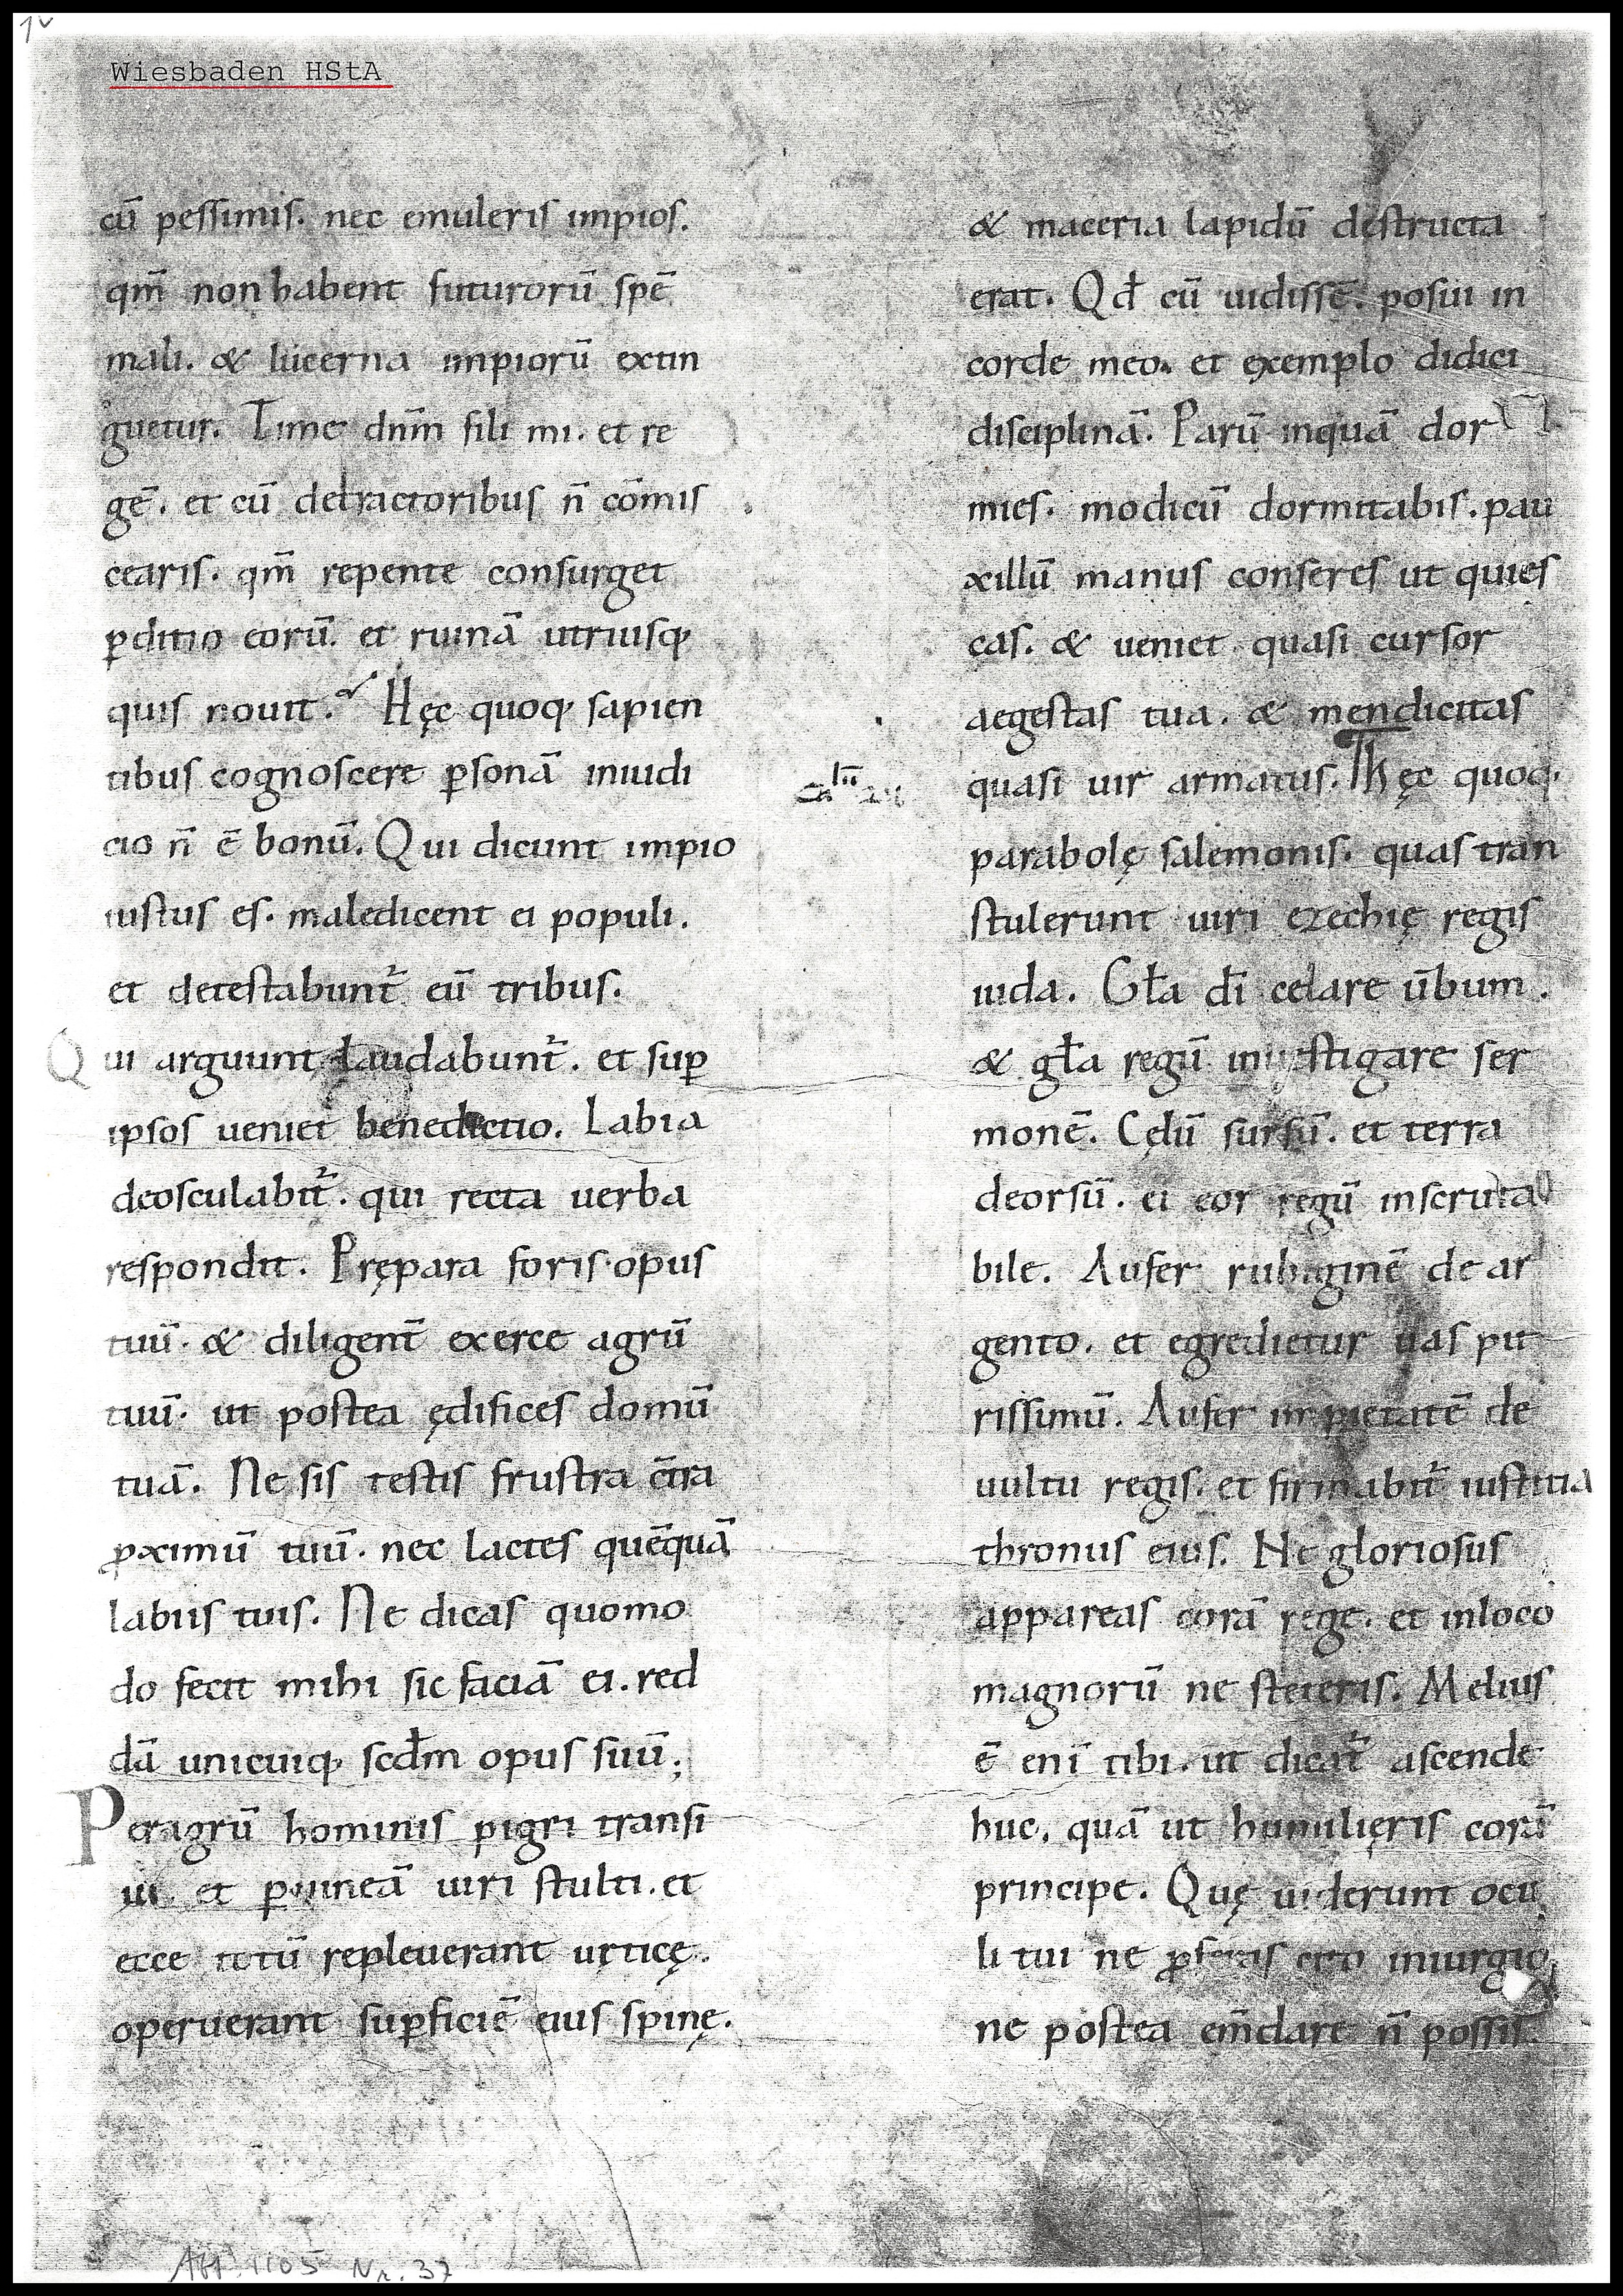 1v
Wiesbaden HStA
cū pessimis. nec emuleris impios.
qm̄ non habent futurorū spē
mali. & lucerna impiorū extin
guetur. Time dnm̄ fili mi. et re
gē. et cū detractoribus n̄ cōmis
cearis. qm̄ repente consurget
ꝑditio eorū. et ruinā utriusq;
quis nouit. Hęc quoq; sapien
tibus cognoscere ꝑsonā iniudi
cio n̄ ē bonū. Qui dicunt impio
iustus es. maledicent ei populi.
et detestabunt᷑ eū tribus.
Qui arguunt laudabunt᷑. et suꝑ
ipsos ueniet benedictio. Labia
deosculabit᷑. qui recta uerba
respondit. Prępara foris opus
tuū. & diligent̄ exerce agrū
tuū. ut postea ędifices domū
tuā. Ne sis testis frustra c̄tra
ꝓximū tuū. nec lactes quēquā
labiis tuis. Ne dicas quomo
do fecit mihi sic faciā ei. red
dā unicuiq; scd̄m opus suū;
Per agrū hominis pigri transi
ui. et ꝑ uineā uiri stulti. et
ecce totū repleuerant urticę.
operuerant suꝑficiē eius spinę.
& maceria lapidū destructa
erat. Qd̄ cū uidissē. posui in
corde meo. et exemplo didici
disciplinā. Parū inquā dor
mies. modicū dormitabis. pau
xillū manus conseres ut quies
cas. & ueniet quasi cursor
aegestas tua. & mendicitas
quasi uir armatus. Hęc quoq;
parabolę salemonis. quas tran
stulerunt uiri ezechię regis
iuda. Gl̄a dī celare ūbum.
& gl̄a regū inuestigare ser
monē. Cęlū sursū. et terra
deorsū. et cor regū inscruta
bile. Aufer rubiginē de ar
gento. et egredietur uas pu
rissimū. Aufer impietatē de
uultu regis. et firmabit᷑ iustitia
thronus eius. Ne gloriosus
appareas corā rege. et inloco
magnorū ne steteris. Melius
ē enī tibi. ut dicat᷑ ascende
huc, quā ut humilięris corā
principe. Quę uiderunt ocu
li tui ne ꝓferas cito iniurgio
ne postea em̄dare n̄ possis.
Abt. 1105 Nr. 37